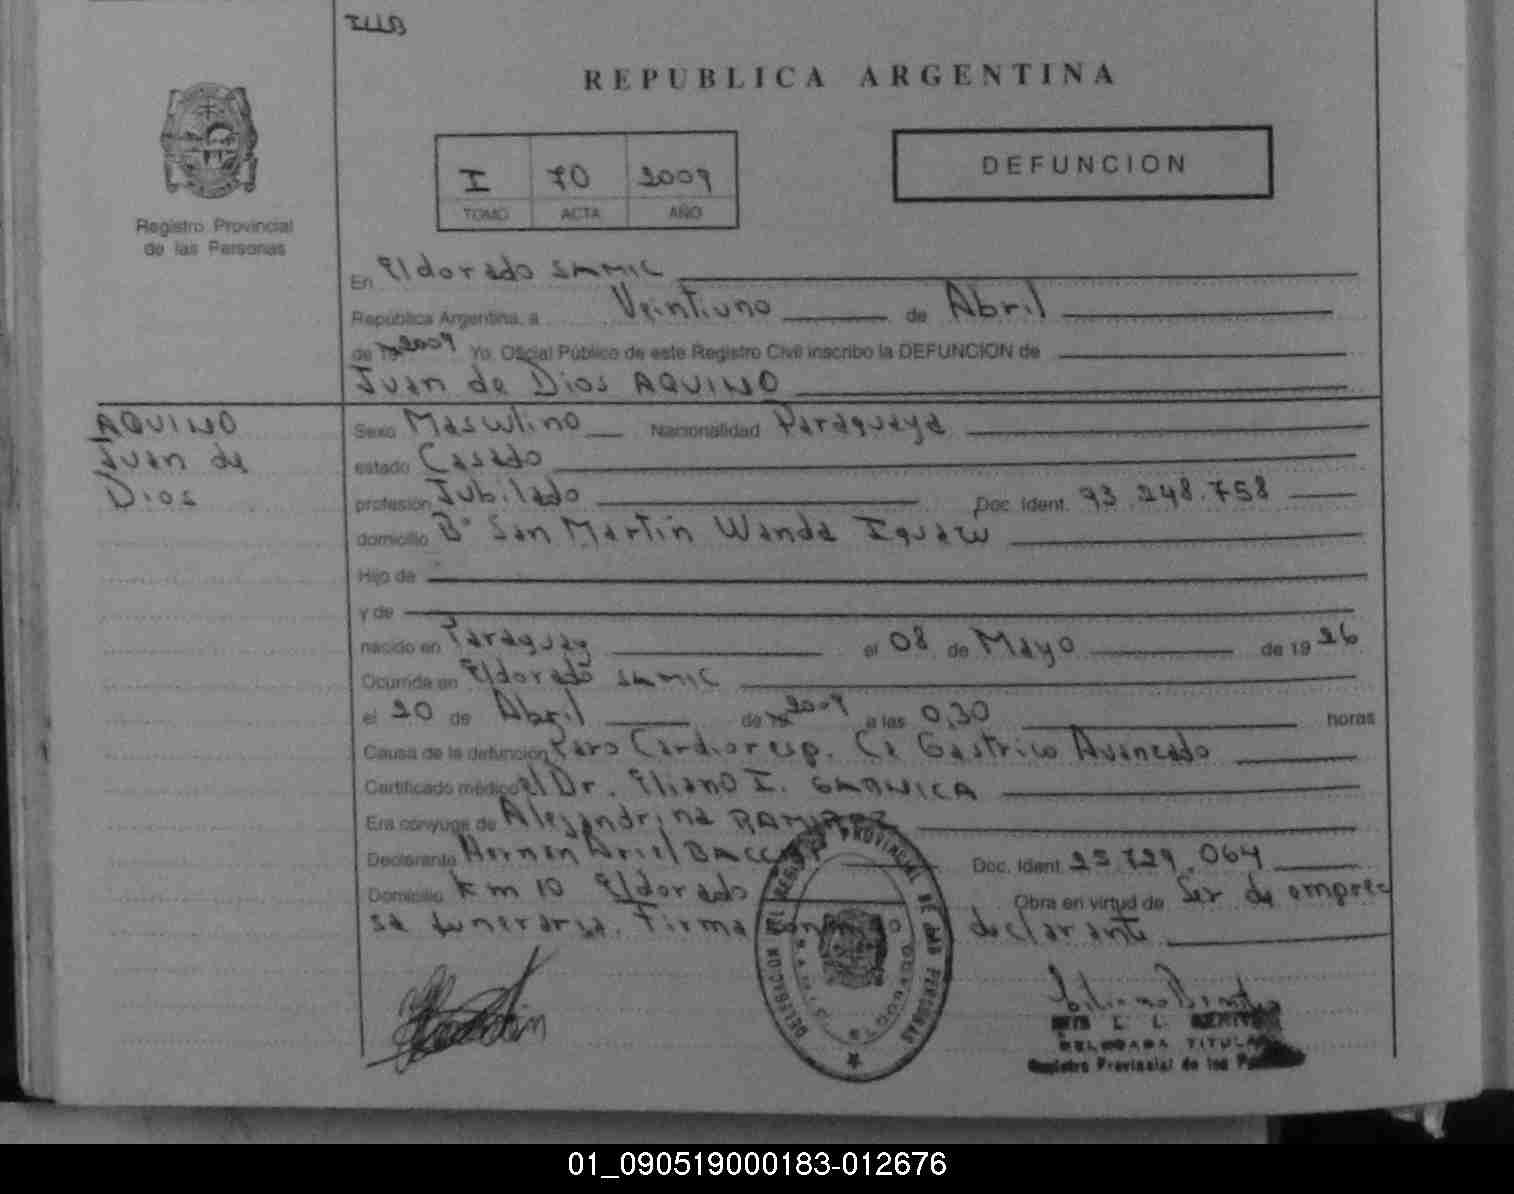 REPUBLICA ARGENTINA
Registro Provincial
de las Personas
I 70 2009
TOMO ACTA AÑO
DEFUNCION
En Eldorado SAMIC
República Argentina, a Veintiuno de Abril
de 19 2009 Yo, Oficial Público de este Registro Civil inscribo la DEFUNCION de
Juan de Dios AQUINO
AQUINO
Juan de
Dios
Sexo Masculino Nacionalidad Paraguaya
estado Casado
profesión Jubilado Doc. Ident. 93.248.758
domicilio B° San Martín Wanda Iguazú
Hijo de
y de
nacido en Paraguay el 08 de Mayo de 19 26
Ocurrida en Eldorado SAMIC
el 20 de Abril de 19 2009 a las 0,30 horas
Causa de la defunción Paro Cardioresp. Ca Gastrico Avanzado
Certificado médico el Dr. Eliano I. GARNICA
Era cónyuge de Alejandrina RAMIREZ
Declarante Hernan Ariel Doc. Ident. 25.729.064
Domicilio Km 10 Eldorado Obra en virtud de Ser de empre
sa funeraria. Firma declarante
DELEGACION DEL REGISTRO PROVINCIAL DE LAS PERSONAS
DELEGADA TITULAR
Registro Provincial de las
01_090519000183-012676